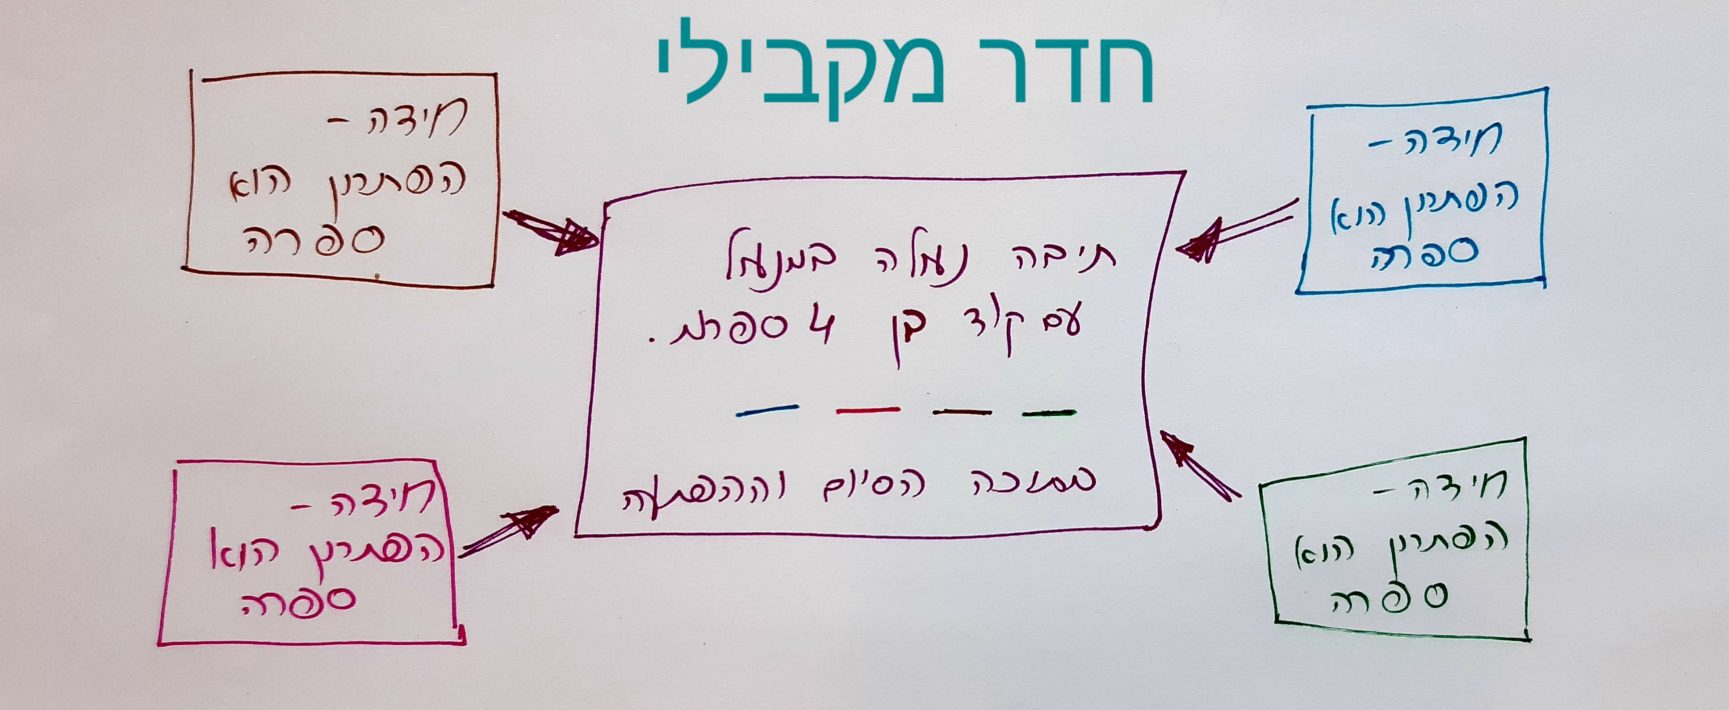 חדר מקבילי
חידה -
הפתרון הוא
ספרה
חידה -
הפתרון הוא
ספרה
תיבה נעולה במנעול
עם קוד בן 4 ספרות.
בתוכה הסיום וההפתעה
חידה -
הפתרון הוא
ספרה
חידה -
הפתרון הוא
ספרה